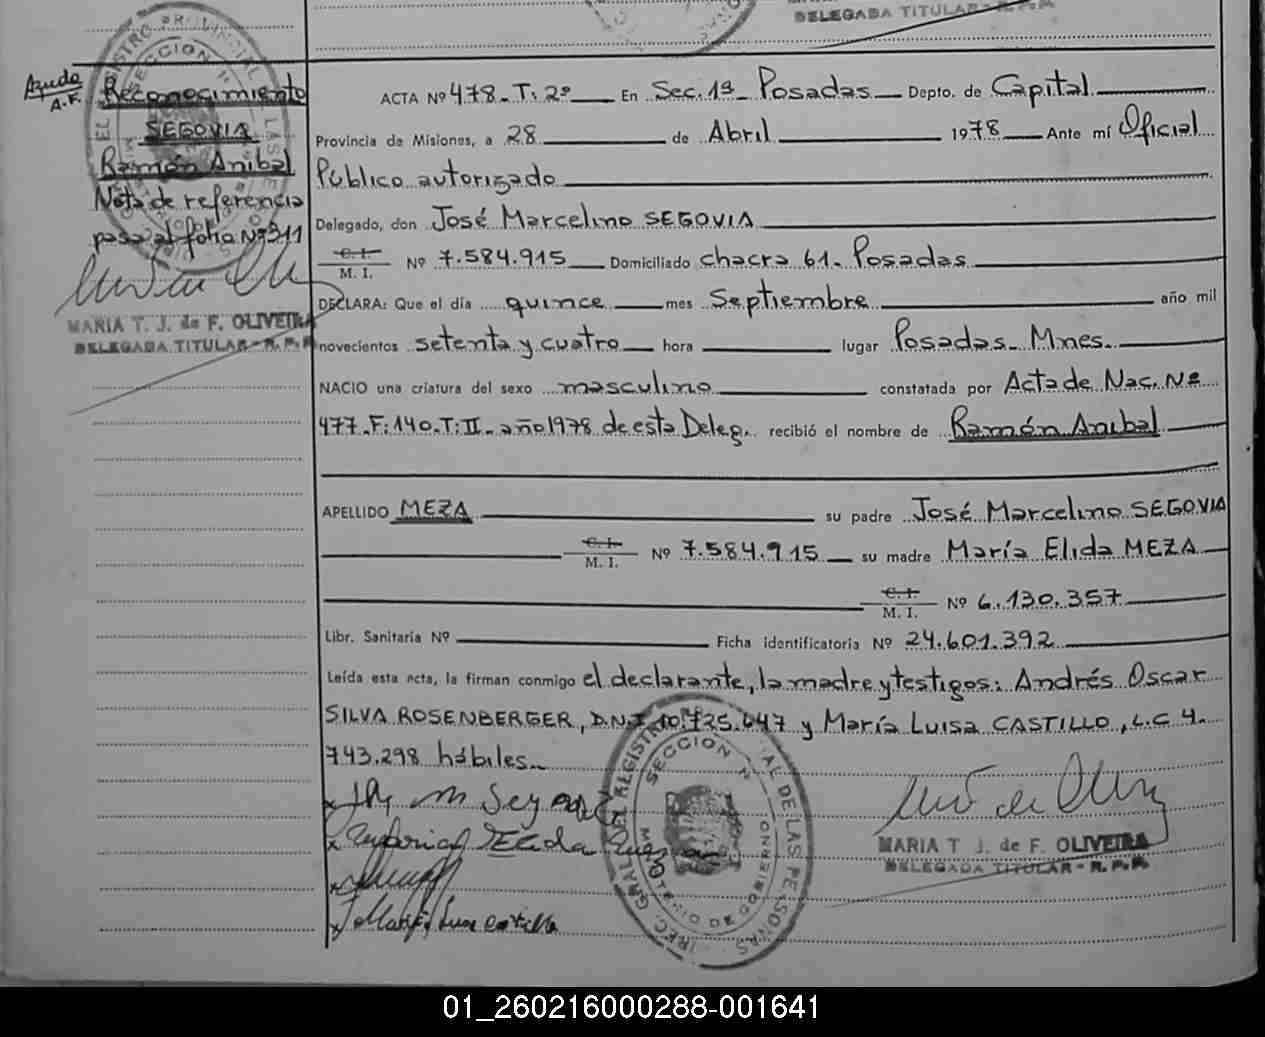 DELEGADA TITULAR - R. P. P.
Ayuda
A.F.
Reconocimiento
SEGOVIA
Ramón Anibal
Nota de referencia
pasa al folio Nº 311
MARIA T. J. de F. OLIVEIRA
DELEGADA TITULAR - R. P. P.
ACTA Nº 478_ T: 2º En Sec. 1ª Posadas Depto. de Capital
Provincia de Misiones, a 28 de Abril 1978 Ante mí Oficial
Público autorizado
Delegado, don José Marcelino SEGOVIA
C. I.
M. I. Nº 7.584.915 Domiciliado chacra 61_ Posadas
DECLARA: Que el día quince mes Septiembre año mil
novecientos setenta y cuatro hora lugar Posadas_ Mnes.
NACIO una criatura del sexo masculino constatada por Acta de Nac. Nº
477_F:140_T:II_ año 1978 de esta Deleg. recibió el nombre de Ramón Anibal
APELLIDO MEZA su padre José Marcelino SEGOVIA
C. I.
M. I. Nº 7.584.915 su madre María Elida MEZA
C. I.
M. I. Nº 6.130.357
Libr. Sanitaria Nº Ficha identificatoria Nº 24.601.392
Leída esta acta, la firman conmigo el declarante, la madre y testigos: Andrés Oscar
SILVA ROSENBERGER, D.N.I 10.725.647 y María Luisa CASTILLO, L.C 4.
743.298 hábiles_
SECCION 1ª
MINISTERIO DE GOBIERNO
MARIA T J. de F. OLIVEIRA
DELEGADA TITULAR - R. P. P.
01_260216000288-001641